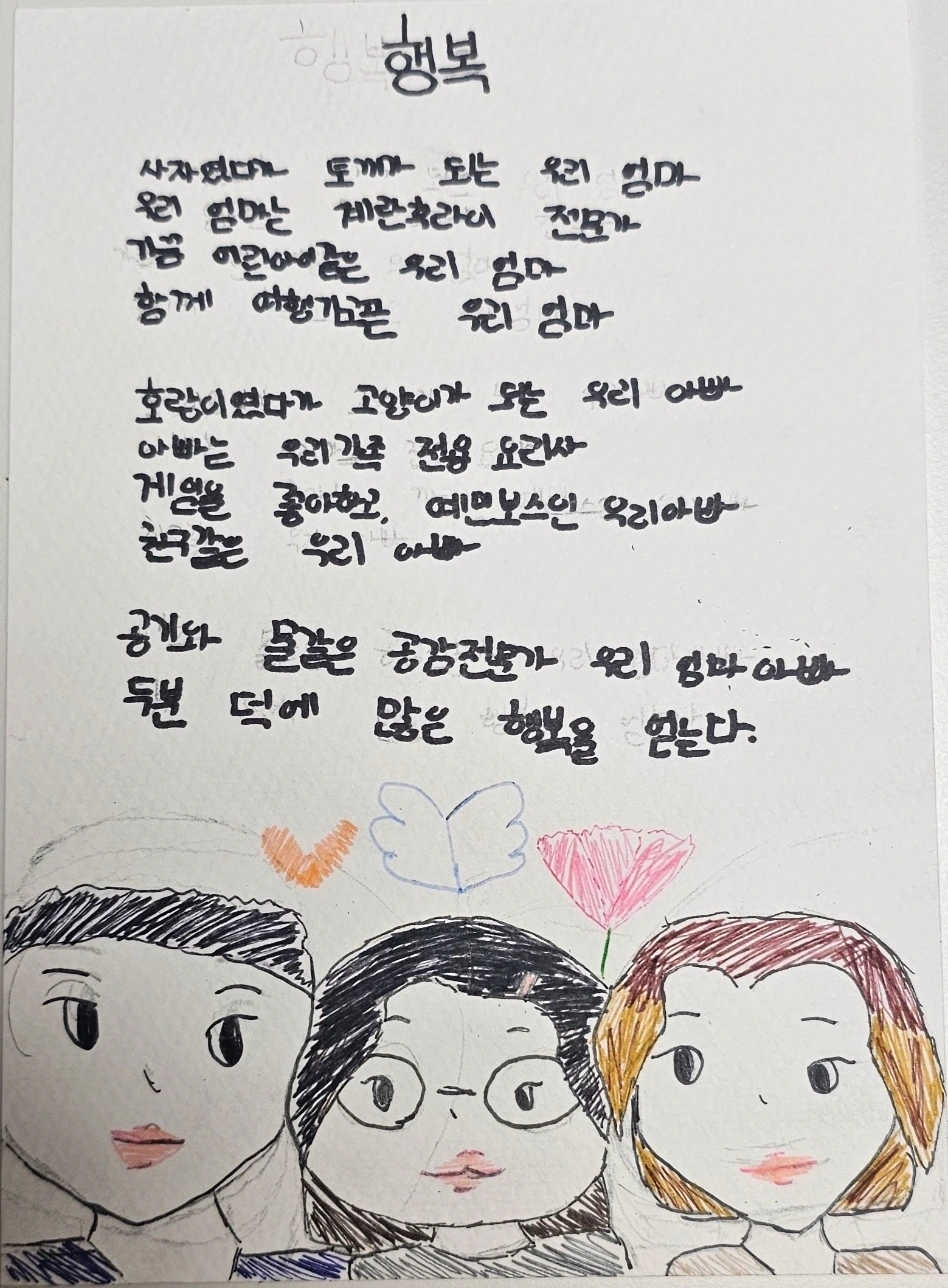 행복
사자였다가 토끼가 되는 우리 엄마
우리 엄마는 계란후라이 전문가
가끔 어린아이같은 우리 엄마
함께 여행가고픈 우리 엄마
호랑이였다가 고양이가 되는 우리 아빠
아빠는 우리가족 전용 요리사
게임을 좋아하고, 예민보스인 우리아빠
친구같은 우리 아빠
공기와 물같은 공감전문가 우리 엄마 아빠
두분 덕에 많은 행복을 얻는다.